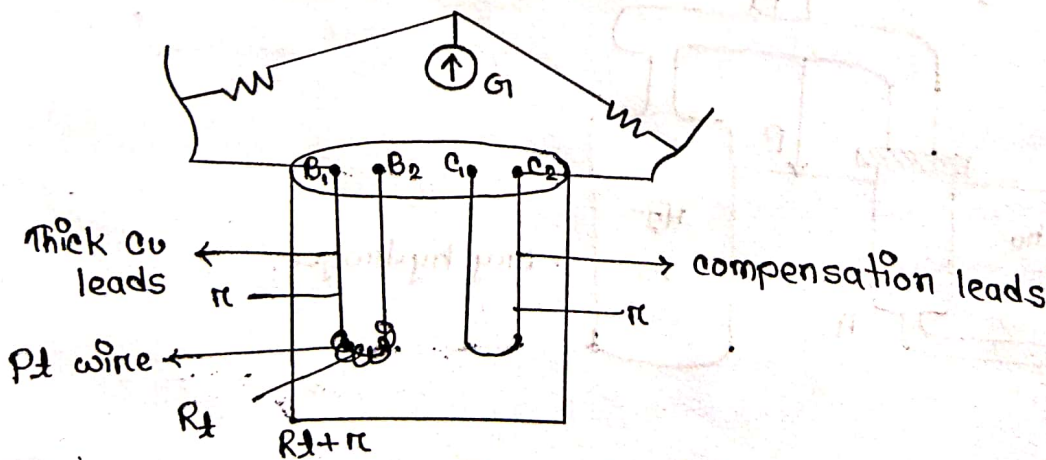 G
B₁ B₂ C₁ C₂
Thick Cu
leads
compensation leads
r
r
Pt wire
Rt
Rt+r